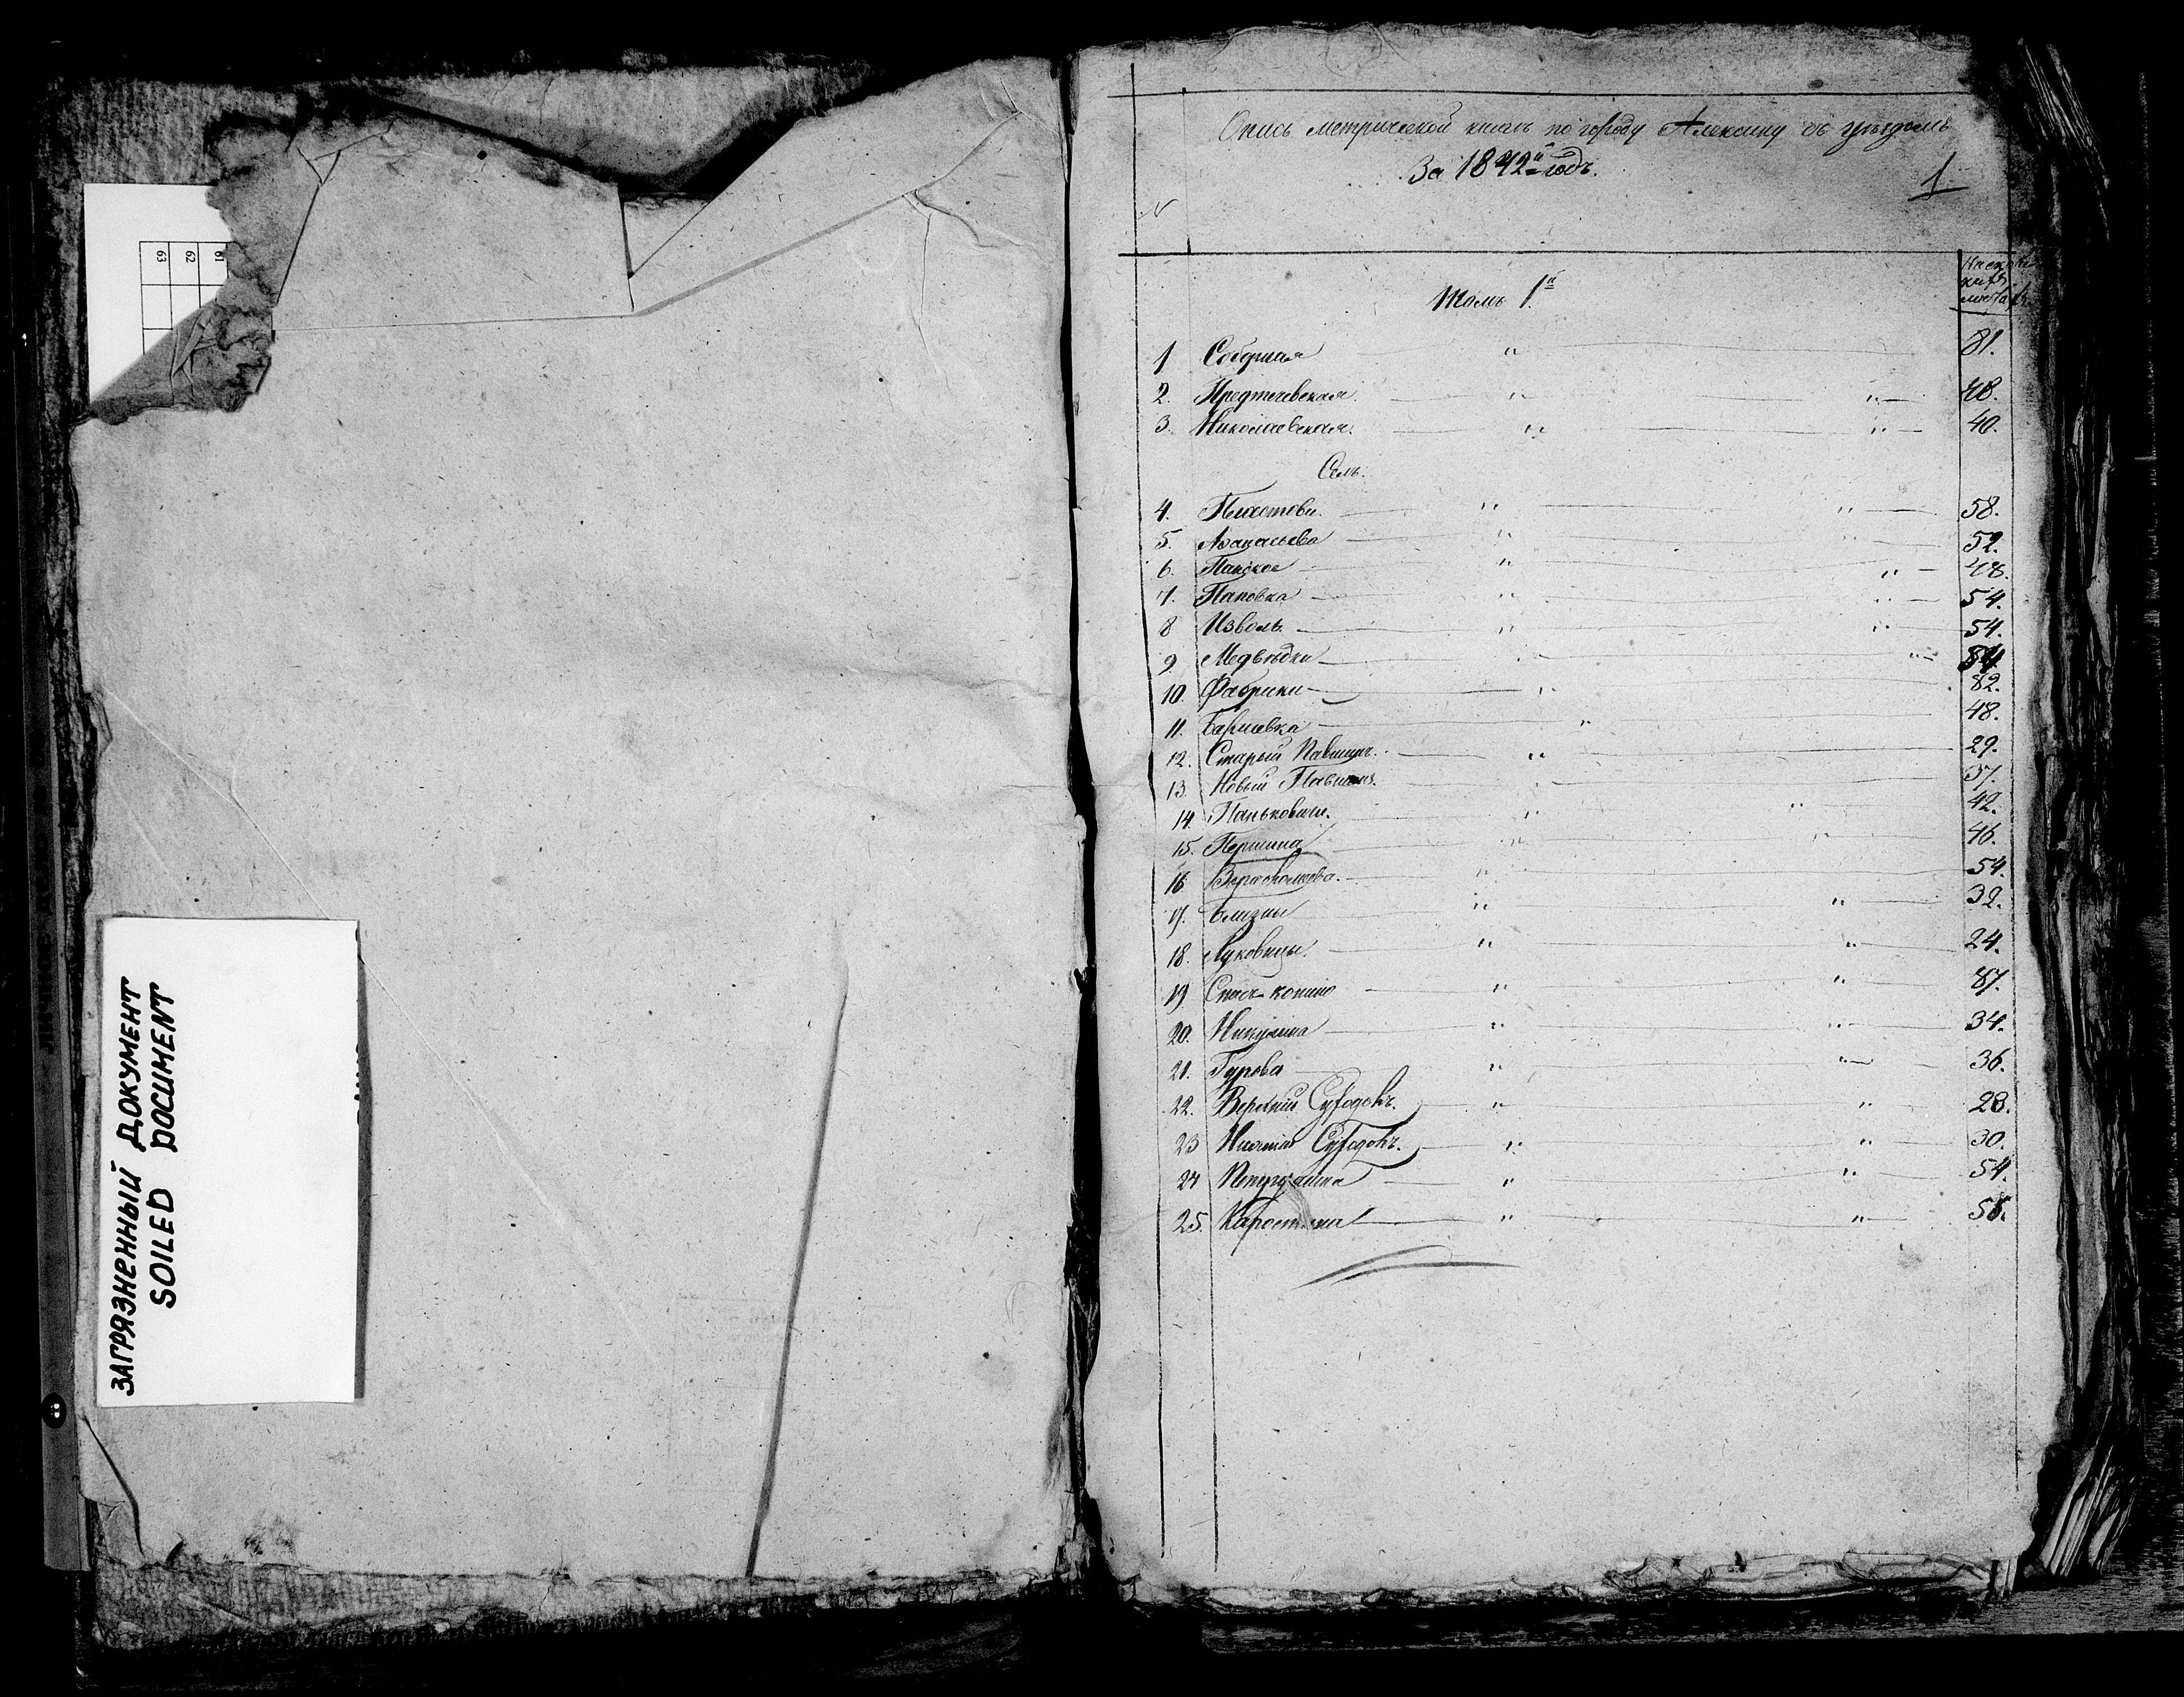 63 62 61
ЗАГРЯЗНЕННЫЙ ДОКУМЕНТ
SOILED DOCUMENT
Опись метрической книги по городу Алексину съ уѣздомъ
За 1842й годъ.
1
№
На сколькихъ листахъ
Томъ 1й
1 Соборная " 81.
2. Предтечевская. " " 48.
3. Николаевская. " " 40.
Селъ.
4. " " 58.
5. Аѳанасьева " " 52.
6. Панское " " 48.
7. Поповка " " 54.
8 Изволь. " " 54.
9. Медвѣдки " " 84.
10. Фабрики " 82.
11. " 48.
12. Старый Павшинъ. " 29.
13. Новый Павшинъ. " 37.
14. Паньковичи. " " 42.
15. Першина " " 46.
16 " 54.
17. Близны " " 32.
18. Луковицы. " " 24.
19 Спасъ-конино " " 87.
20. Никулина " " 34.
21. Гурова " " 36.
22. Верхній Суходолъ. " " 28.
23 Нижній Суходолъ. " " 30.
24 " " 54.
25. Каростина " " 56.